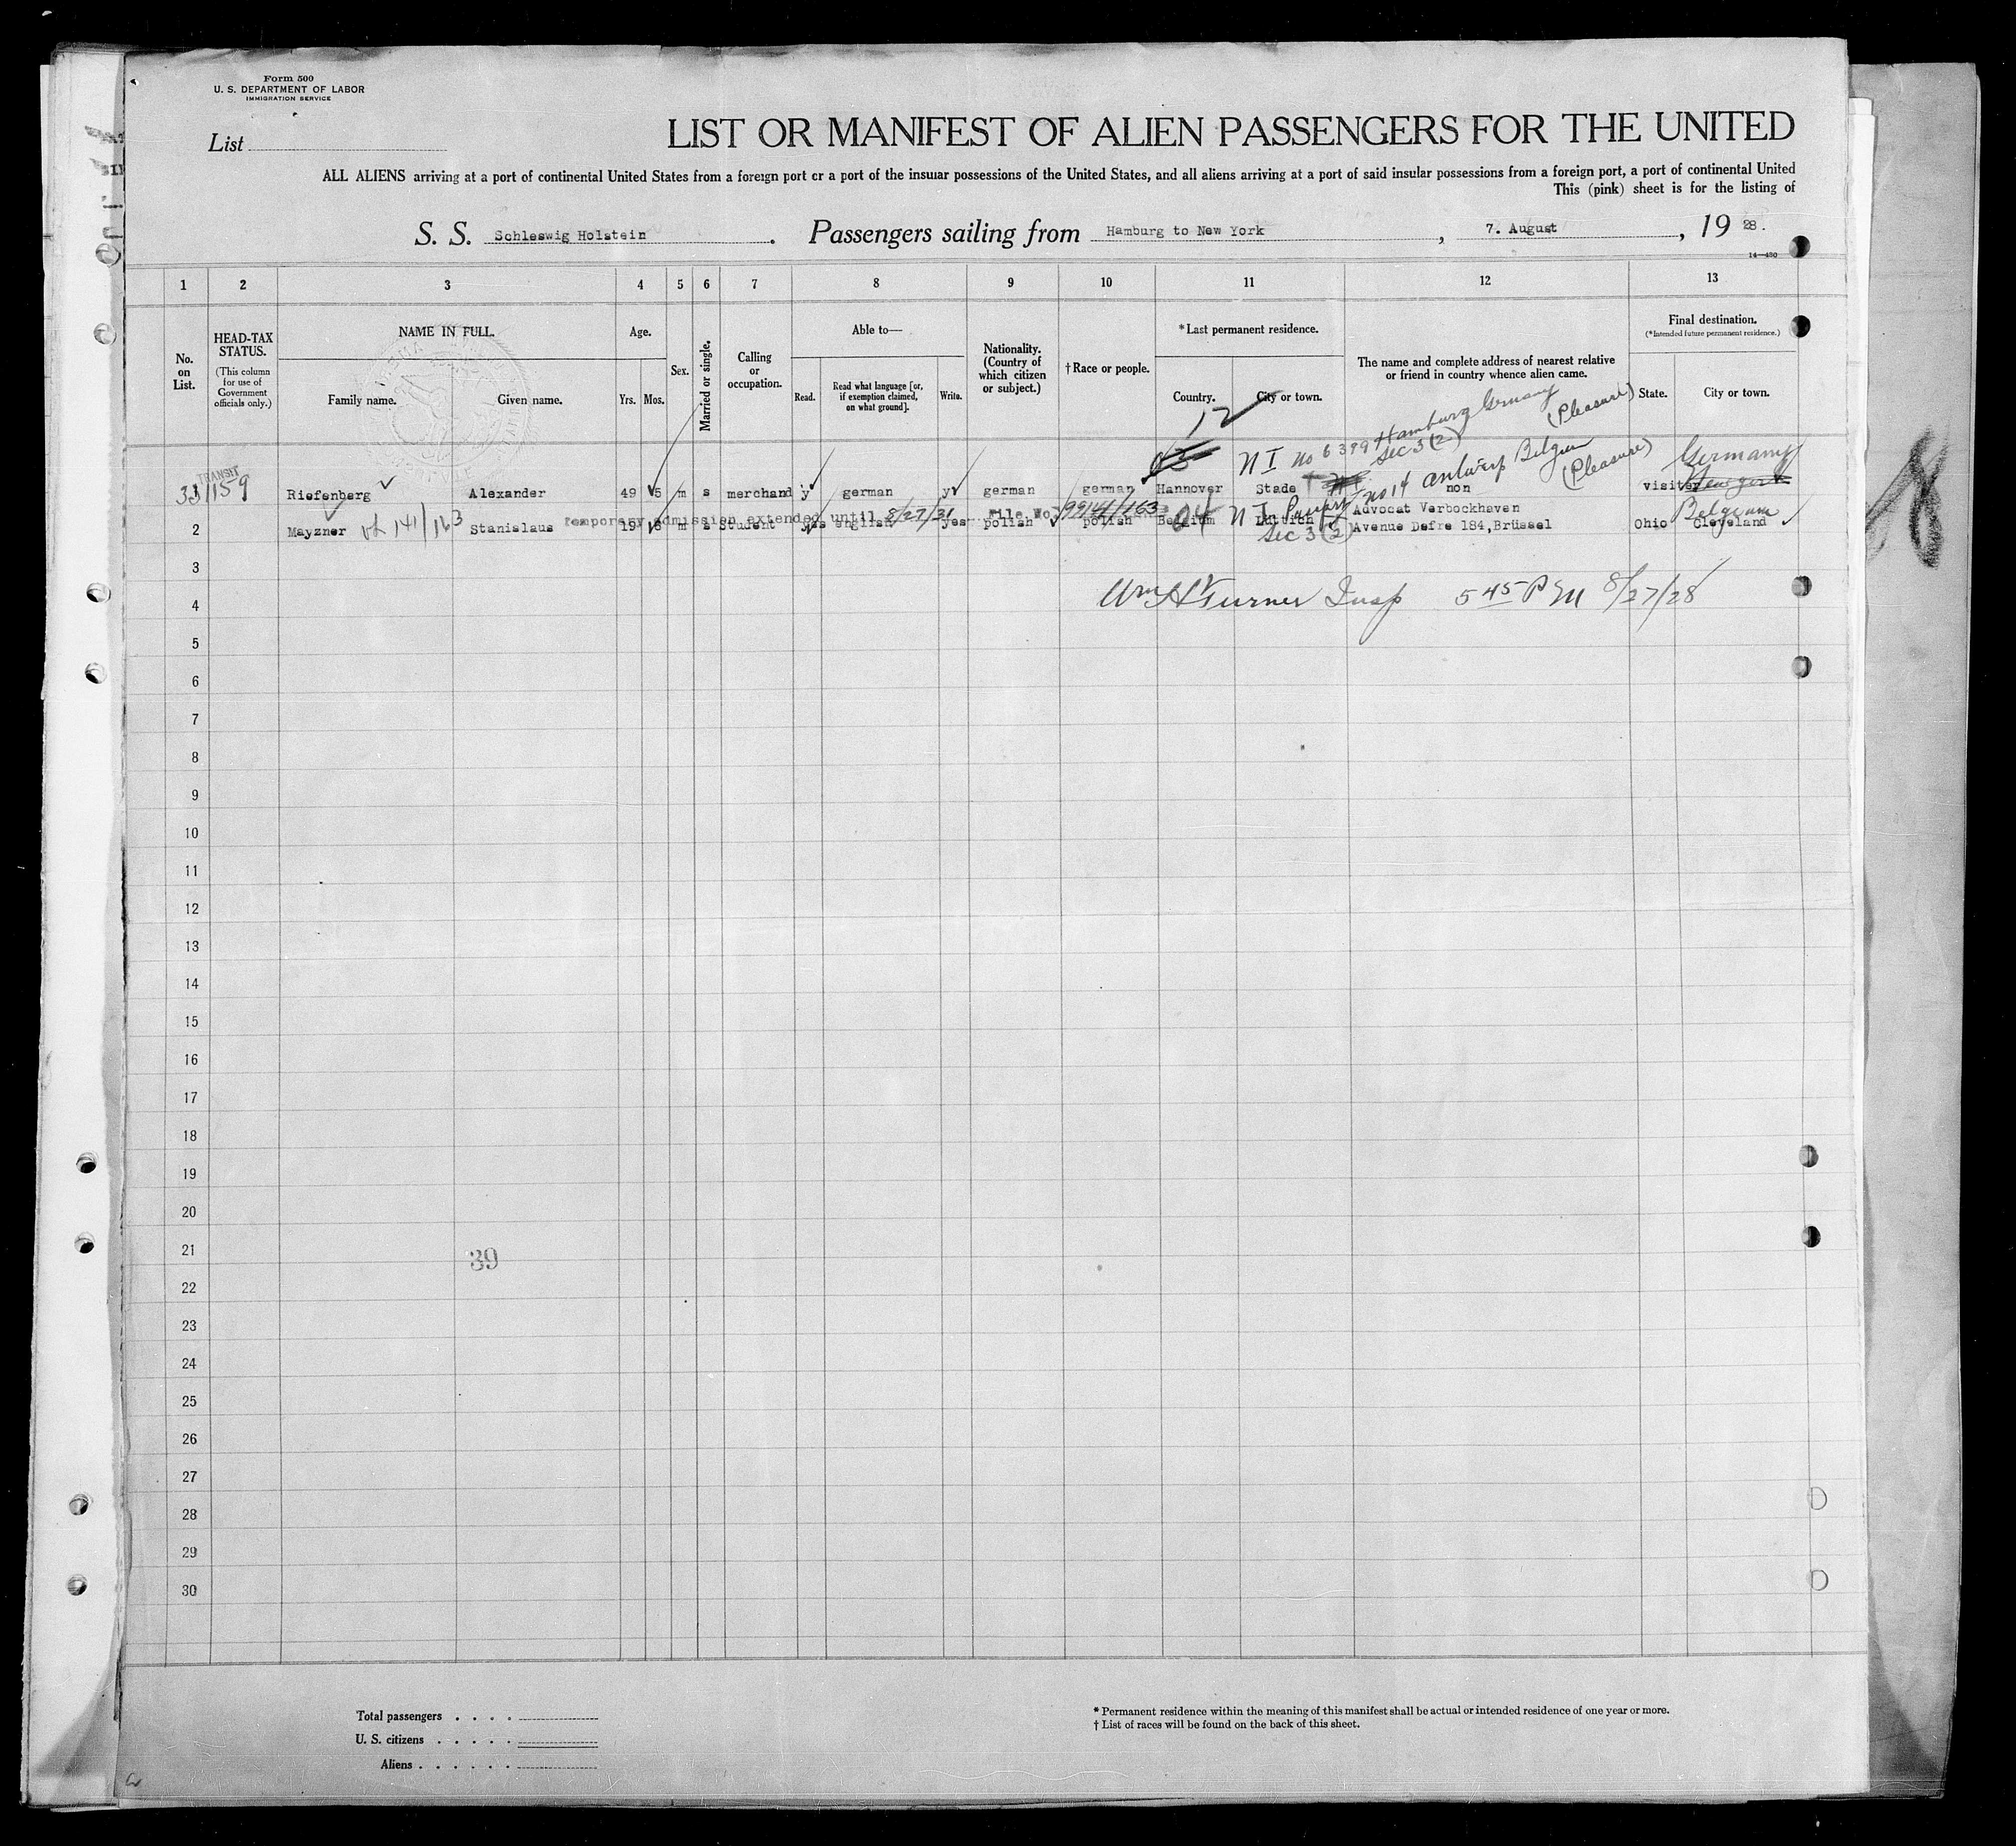 Form 500
U. S. DEPARTMENT OF LABOR
IMMIGRATION SERVICE
List
LIST OR MANIFEST OF ALIEN PASSENGERS FOR THE UNITED
ALL ALIENS arriving at a port of continental United States from a foreign port or a port of the insular possessions of the United States, and all aliens arriving at a port of said insular possessions from a foreign port, a port of continental United
This (pink) sheet is for the listing of
S. S. Schleswig Holstein. Passengers sailing from Hamburg to New York, 7. August, 19 28.
14—430
1 2 3 4 5 6 7 8 9 10 11 12 13
No. on List.
HEAD-TAX STATUS.
(This column for use of Government officials only.)
NAME IN FULL.
Family name. Given name.
Age.
Yrs. Mos.
Sex.
Married or single.
Calling or occupation.
Able to—
Read. Read what language [or, if exemption claimed, on what ground]. Write.
Nationality. (Country of which citizen or subject.)
† Race or people.
*Last permanent residence.
Country. City or town.
The name and complete address of nearest relative or friend in country whence alien came.
Final destination.
(*Intended future permanent residence.)
State. City or town.
12
Hamburg Germany (Pleasure)
N I No 6399 Sec 3 (2)
no 14 antwerp Belgium (Pleasure)
Germany
TRANSIT
159
Riefenberg Alexander 49 5 m s merchand y german y german german Hannover Stade non visitor New York
temporary admission extended until 8/27/31 File No. 99141/163
Belgium
04 N I Sec 3 (2)
Advocat Verbockhaven
2 Mayzner 141/163 Stanislaus 19 8 m s Student yes english yes polish polish Belgium Luttich Avenue Defre 184,Brüssel Ohio Cleveland
3
Wm H Turner Insp 5 45 PM 8/27/28
4
5
6
7
8
9
10
11
12
13
14
15
16
17
18
19
20
21
39
22
23
24
25
26
27
28
29
30
Total passengers . . . .
U. S. citizens . . . . .
Aliens . . . . . .
* Permanent residence within the meaning of this manifest shall be actual or intended residence of one year or more.
† List of races will be found on the back of this sheet.